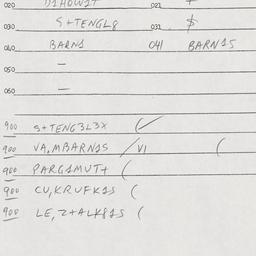 020 D1HOW1T 021 +
030 S+TENGL8 031 $
040 BARN1 041 BARN15
050 —
060 —
900 S+TENG3L3X (/
900 VA,MBARN1S /VI (
900 PARG1MUT+ (
900 CV,KRUFK1S (
900 LE,2+ALK81S (